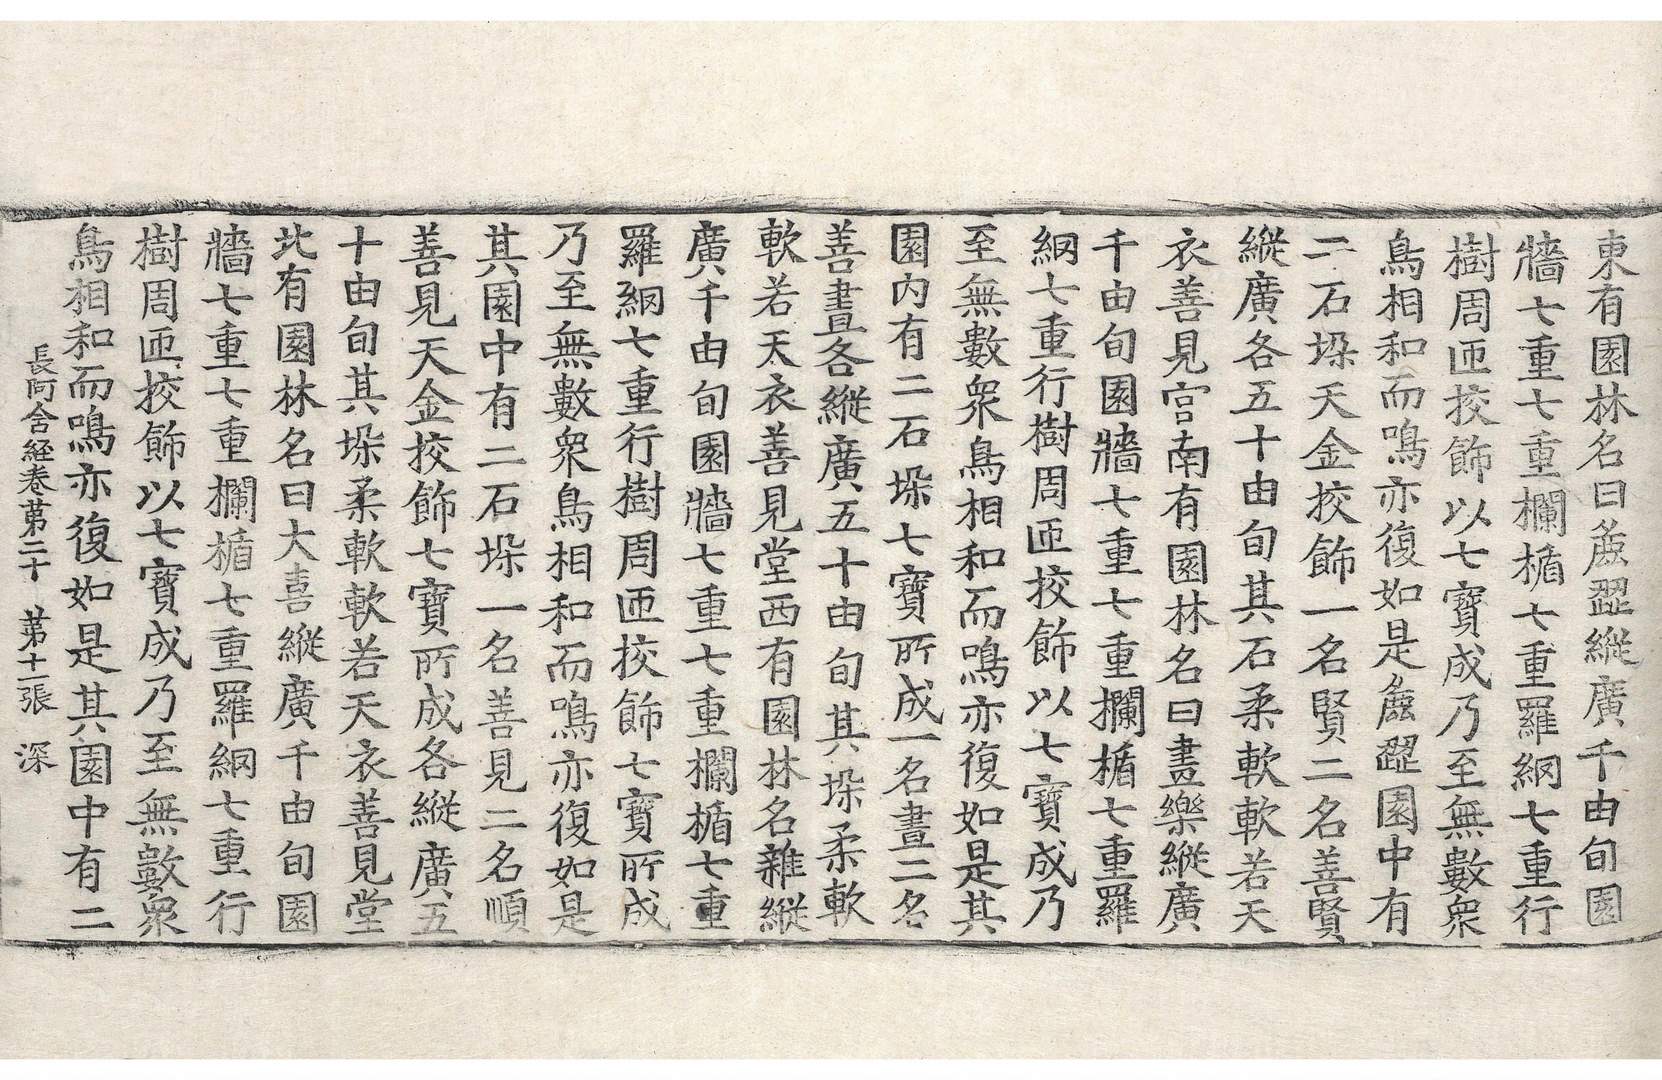 東有園林名曰麁澀縱廣千由旬園
牆七重七重欄楯七重羅網七重行
樹周匝挍飾以七寶成乃至無數衆
鳥相和而鳴亦復如是麁澀園中有
二石垛天金挍飾一名賢二名善賢
縱廣各五十由旬其石柔軟軟若天
衣善見宮南有園林名曰畫樂縱廣
千由旬園牆七重七重欄楯七重羅
網七重行樹周匝挍飾以七寶成乃
至無數衆鳥相和而鳴亦復如是其
園内有二石垛七寶所成一名晝二名
善晝各縱廣五十由旬其垛柔軟
軟若天衣善見堂西有園林名雜縱
廣千由旬園牆七重七重欄楯七重
羅網七重行樹周匝挍飾七寶所成
乃至無數衆鳥相和而鳴亦復如是
其園中有二石垛一名善見二名順
善見天金挍飾七寶所成各縱廣五
十由旬其垛柔軟軟若天衣善見堂
北有園林名曰大喜縱廣千由旬園
牆七重七重欄楯七重羅網七重行
樹周匝挍飾以七寶成乃至無數衆
鳥相和而鳴亦復如是其園中有二
長阿含経卷苐二十 苐十一張 深